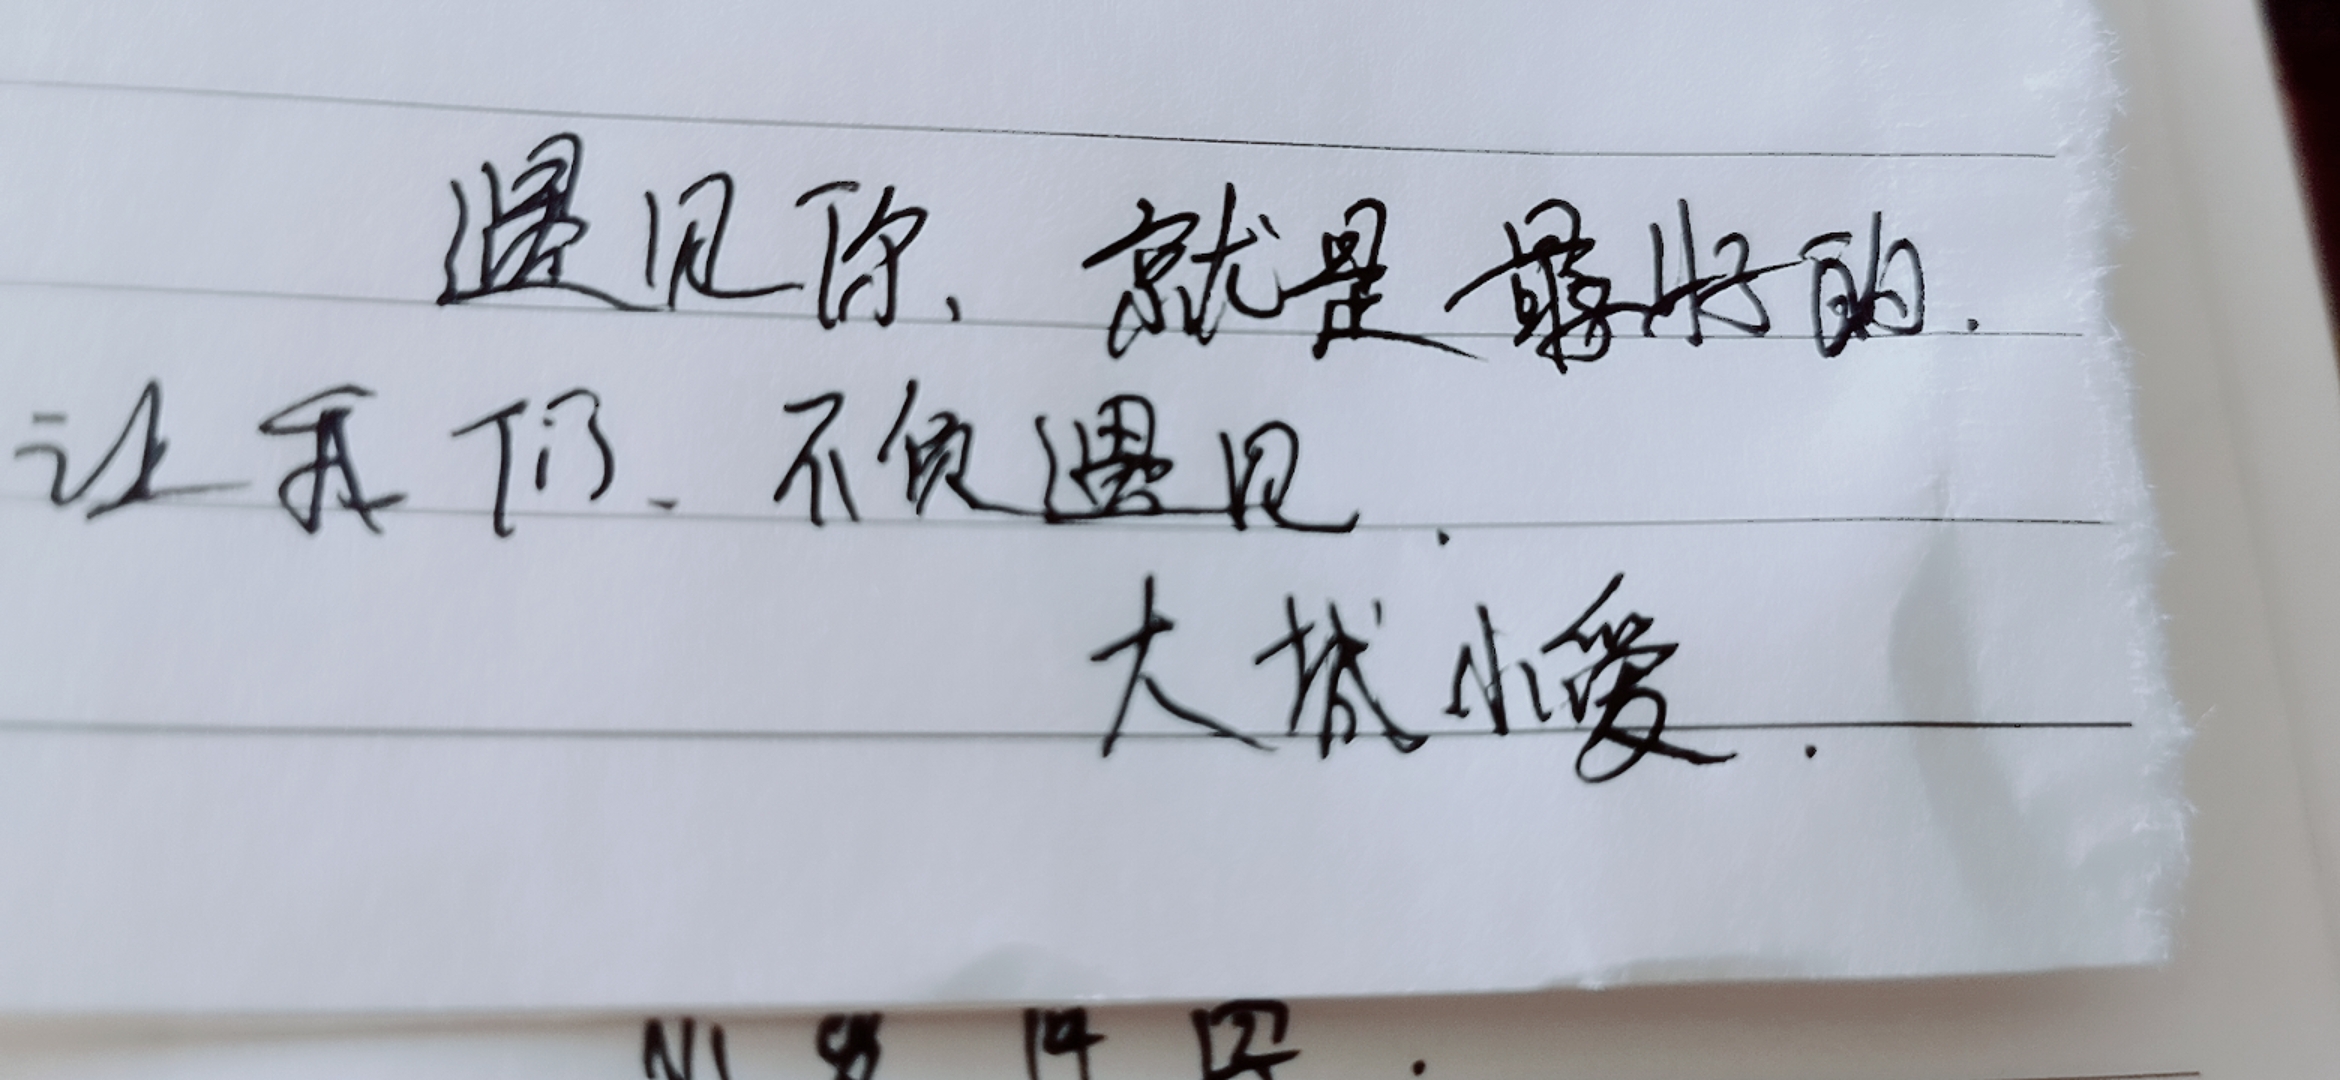 遇见你、就是最好的.
让我们、不负遇见.
大城小爱.